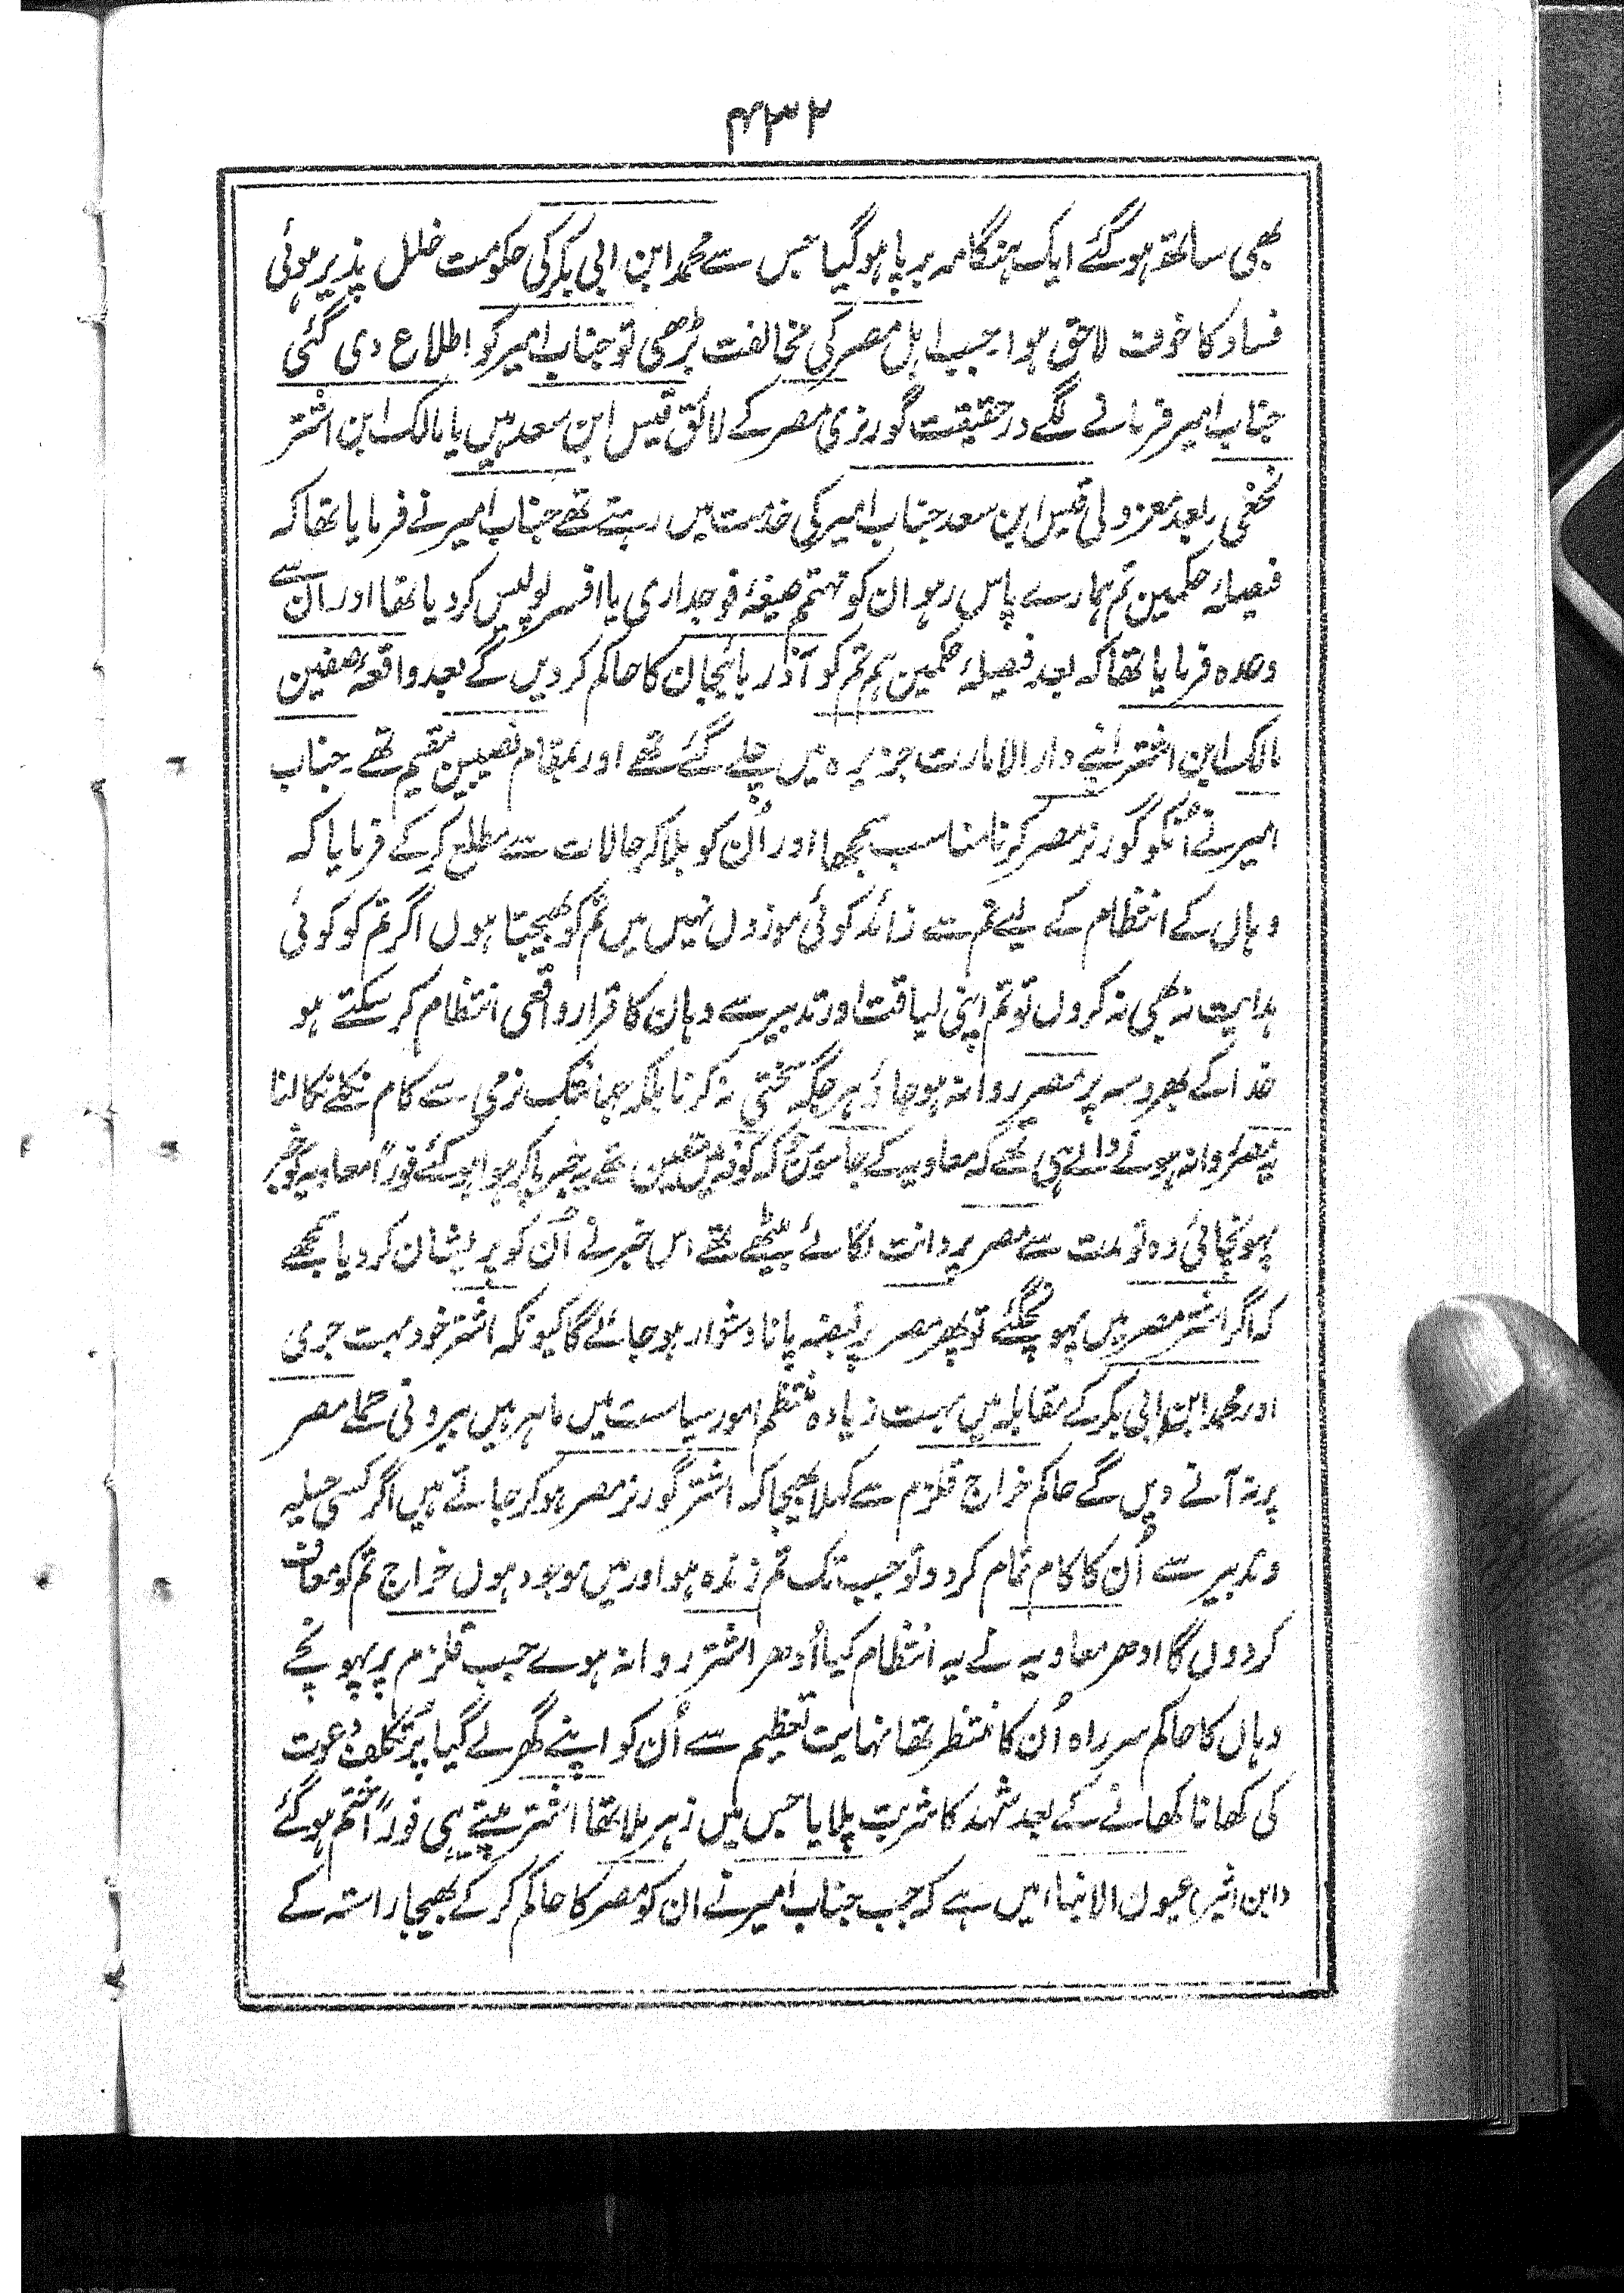 ۴۳۲
بھی ساتھ ہو گئے ایک ہنگامہ برپا ہو گیا جس سے محمد ابن ابی بکر کی حکومت خلل پذیر ہوئی
فساد کا خوف لاحق ہوا جب اہل مصر کی مخالفت بڑھی تو جناب امیر کو اطلاع دی گئی
جناب امیر فرمانے لگے درحقیقت گورنری مصر کے لائق قیس ابن سعد ہیں یا مالک ابن اشتر
نخعی بعد معزولی قیس ابن سعد جناب امیر کی خدمت میں رہتے تھے جناب امیر نے فرمایا تھا کہ
فیصلۂ حکمین تم ہمارے پاس رہو ان کو مہتمم صیغۂ فوجداری یا افسر پولیس کر دیا تھا اور ان سے
وعدہ فرمایا تھا کہ بعد فیصلۂ حکمین ہم تم کو آذربائیجان کا حاکم کر دیں گے بعد واقعۂ صفین
مالک ابن اشتر اپنے دارالامارت جزیرہ میں چلے گئے تھے اور بمقام نصیبین مقیم تھے جناب
امیر نے انکو گورنر مصر کرنا مناسب سمجھا اور اُن کو بلا کر حالات سے مطلع کر کے فرمایا کہ
وہاں کے انتظام کے لیے تم سے زائد کوئی موزوں نہیں میں تم کو بھیجتا ہوں اگر تم کو کوئی
ہدایت نہ بھی نہ کروں تو تم اپنی لیاقت اور تدبیر سے وہان کا قرار واقعی انتظام کر سکتے ہو
خدا کے بھروسہ پر مصر روانہ ہو جاؤ ہر جگہ سختی نہ کرنا بلکہ جہانتک نرمی سے کام نکلے نکالنا
یہ مصر روانہ ہونے والے ہی تھے کہ معاویہ کے جاسوس جو کہ کوفہ میں متعین تھے یہ خبر پا کر ہوا ہو گئے فوراً معاویہ کو خبر
پہونچائی وہ تو مدت سے مصر پر دانت لگائے بیٹھے تھے اس خبر نے اُن کو پریشان کر دیا سمجھے
کہ اگر اشتر مصر میں پہونچ گئے تو پھر مصر پر قبضہ پانا دشوار ہو جائے گا کیونکہ اشتر خود بہت جری
اور محمد ابن ابی بکر کے مقابلہ میں بہت زیادہ منتظم امور سیاست میں ماہر ہیں بیرونی حملے مصر
پر نہ آنے دیں گے حاکم خراج قلزم سے کہلا بھیجا کہ اشتر گورنر مصر ہو کر جاتے ہیں اگر کسی حیلہ
و تدبیر سے اُن کا کام تمام کر دو تو جب تک تم زندہ ہو اور میں موجود ہوں خراج تم کو معاف
کر دوں گا ادھر معاویہ نے یہ انتظام کیا اُدھر اشتر روانہ ہوے جب قلزم پر پہونچے
وہاں کا حاکم سر راہ اُن کا منتظر تھا نہایت تعظیم سے اُن کو اپنے گھر لے گیا پُر تکلف دعوت
کی کھانا کھانے کے بعد شہد کا شربت پلایا جس میں زہر ملا تھا اشتر پیتے ہی فوراً ختم ہو گئے
(ابن اثیر) عیون الانبا میں ہے کہ جب جناب امیر نے ان کو مصر کا حاکم کر کے بھیجا راستہ کے